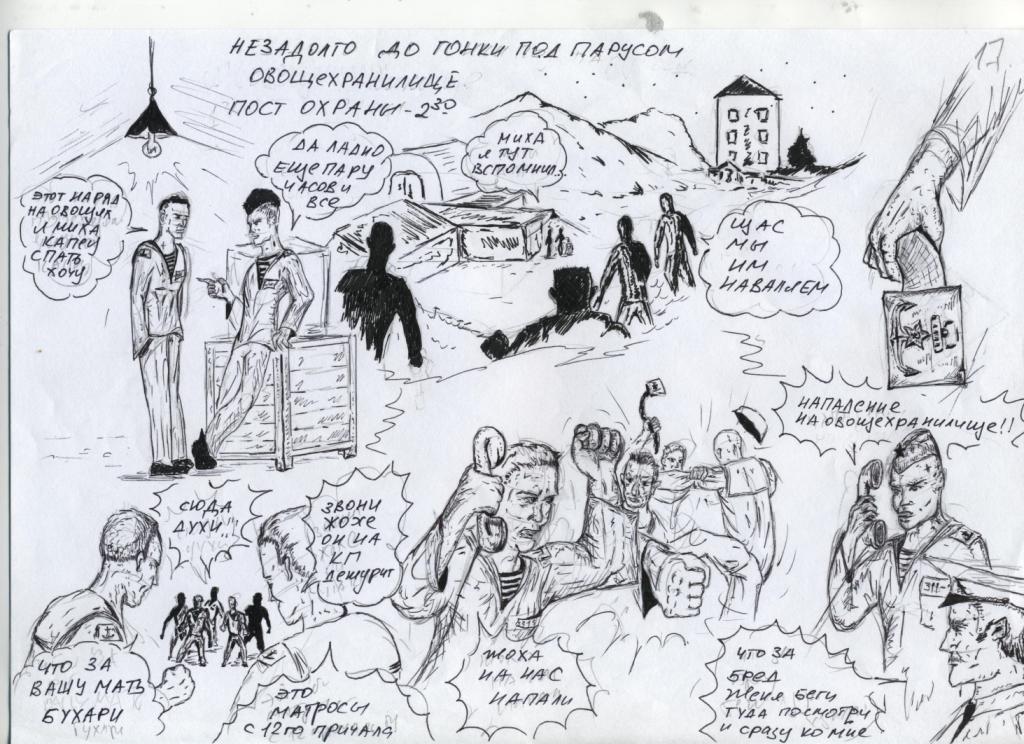 НЕЗАДОЛГО ДО ГОНКИ ПОД ПАРУСОМ
ОВОЩЕХРАНИЛИЩЕ
ПОСТ ОХРАНИ - 2³⁰
ЭТОТ НАРЯД
НА ОВОЩИК
Я МИХА
КАПЕЦ
СПАТЬ
ХОЧУ
ДА ЛАДНО
ЕЩЕ ПАРУ
ЧАСОВ И
ВСЕ
МИХА
Я ТУТ
ВСПОМНИЛ...
ЩАС
МЫ
ИМ
НАВАЛЯЕМ
СЮДА
ДУХИ!!
ЗВОНИ
ЖОХЕ
ОН НА
КП
ДЕЖУРИТ
ЧТО ЗА
ВАШУ МАТЬ
БУХАРИ
ЭТО
МАТРОСЫ
С 12ГО ПРИЧАЛА
ЖОХА
НА НАС
НАПАЛИ
НАПАДЕНИЕ
НА ОВОЩЕХРАНИЛИЩЕ!!
ЧТО ЗА
БРЕД
ЖЕНЯ БЕГИ
ТУДА ПОСМОТРИ
И СРАЗУ КО МНЕ